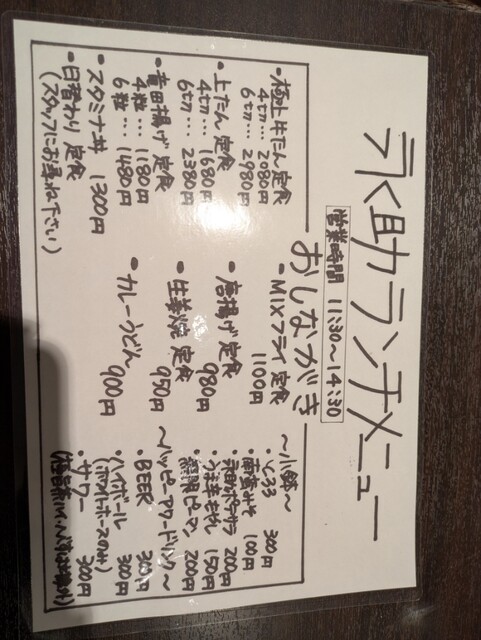 永助ランチメニュー
営業時間 11:30～14:30
おしながき
・極上牛たん定食
4切… 2080円
6切… 2980円
・上たん定食
4切… 1680円
6切… 2380円
・竜田揚げ定食
4粒… 1180円
6粒… 1480円
・スタミナ丼 1300円
・日替わり定食
(スタッフにお尋ね下さい)
・MIXフライ定食
1100円
・唐揚げ定食
980円
・生姜焼定食
950円
・カレーうどん
900円
～小鉢～
・とろろ 300円
・南蛮みそ 100円
・ポテサラ 200円
・150円
・無限ピーマン 200円
～ハッピーアワードリンク～
・BEER 300円
・ハイボール 300円
(ホワイトホースのみ)
・サワー 300円